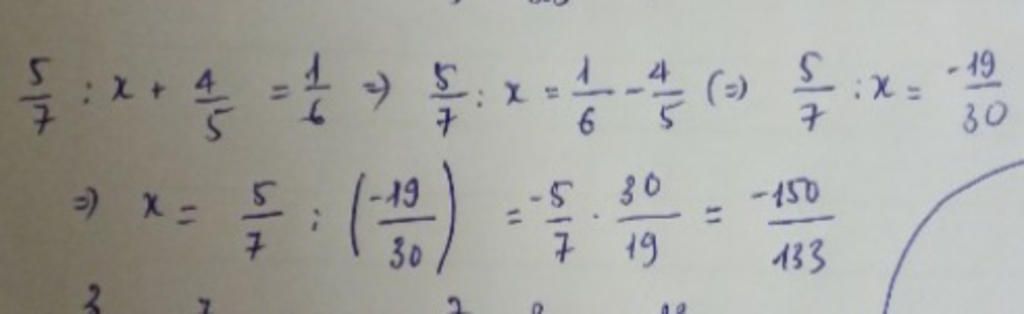 5/7 : x + 4/5 = 1/6 => 5/7 : x = 1/6 - 4/5 (=) 5/7 : x = -19/30
=) x = 5/7 : (-19/30) = -5/7 . 30/19 = -150/133